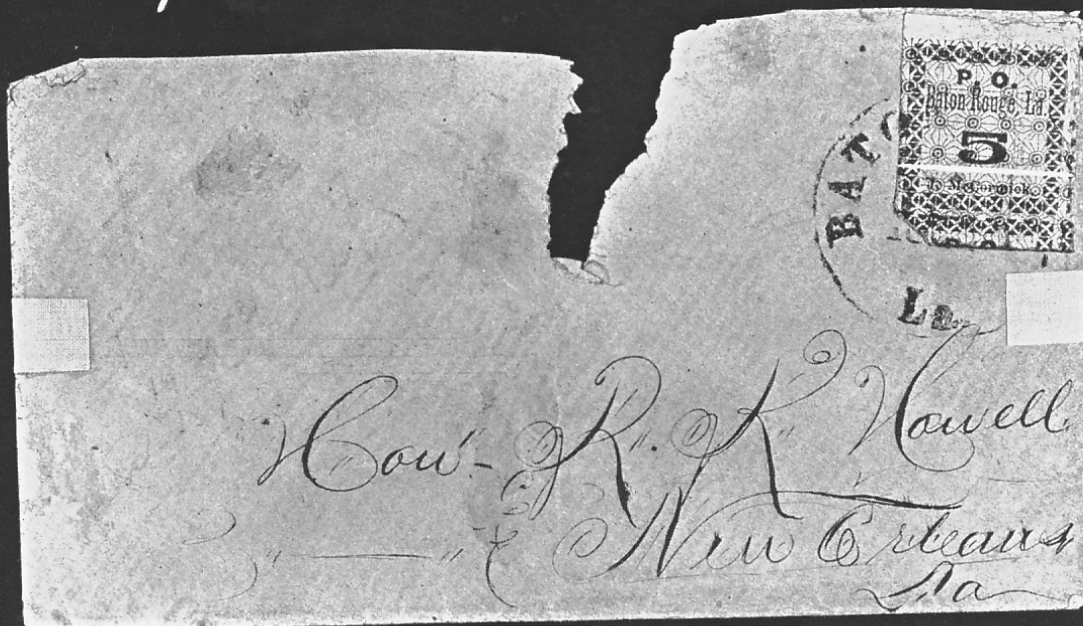 P. O.
Baton Rouge, La.
5
J. McCormick.
BATO
La.
Hon. R. K. Howell
New Orleans
La